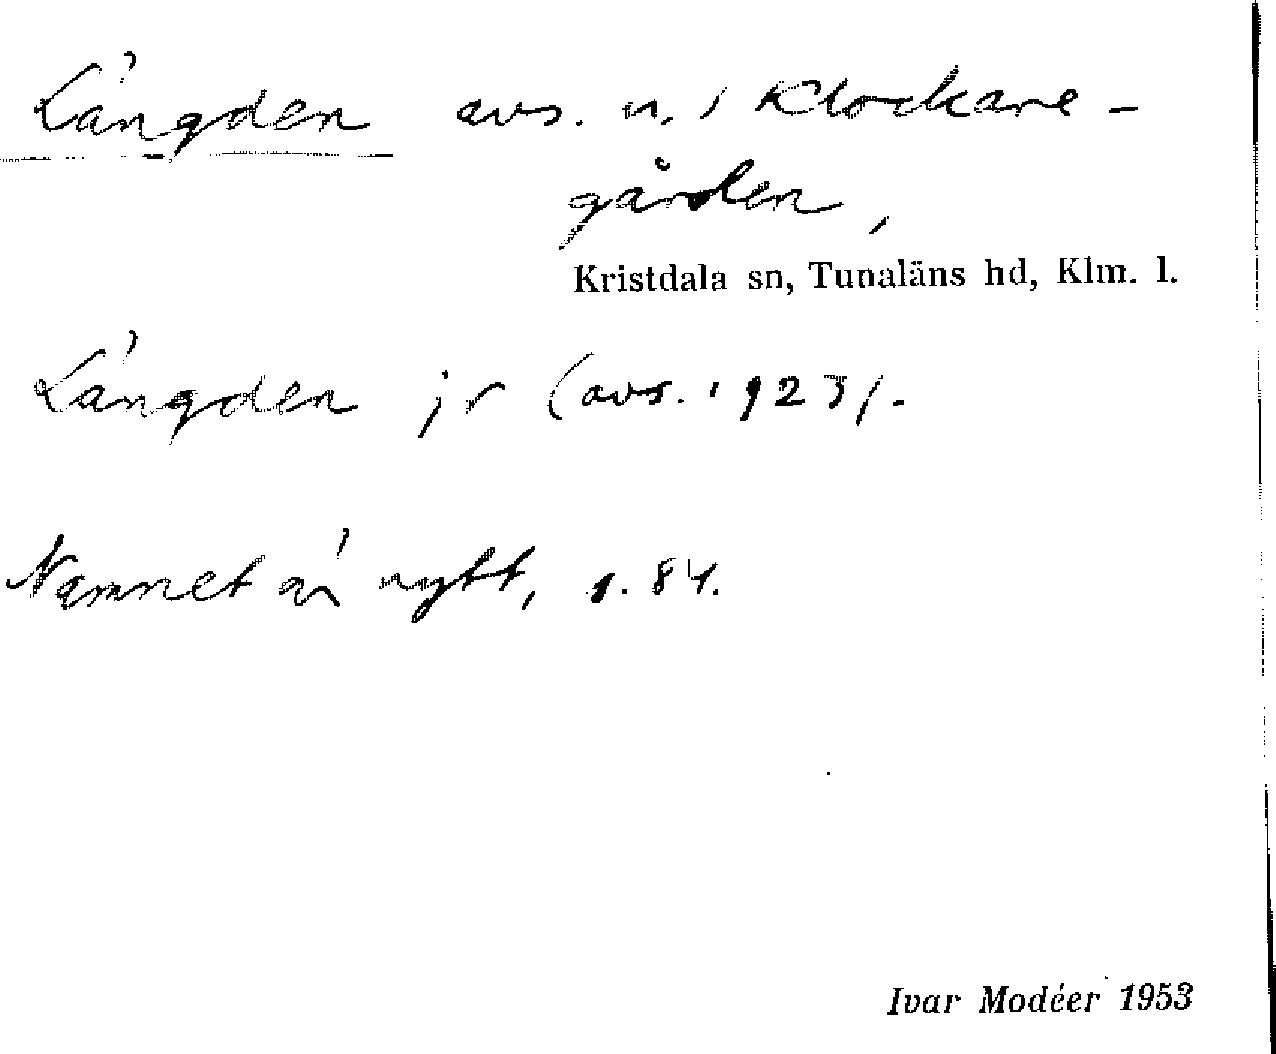 Längden avs. u. i Klockare-
gården,
Kristdala sn, Tunaläns hd, Klm. l.
Längden jr (avs. 1923).
Namnet är nytt, s. 84.
Ivar Modéer 1953